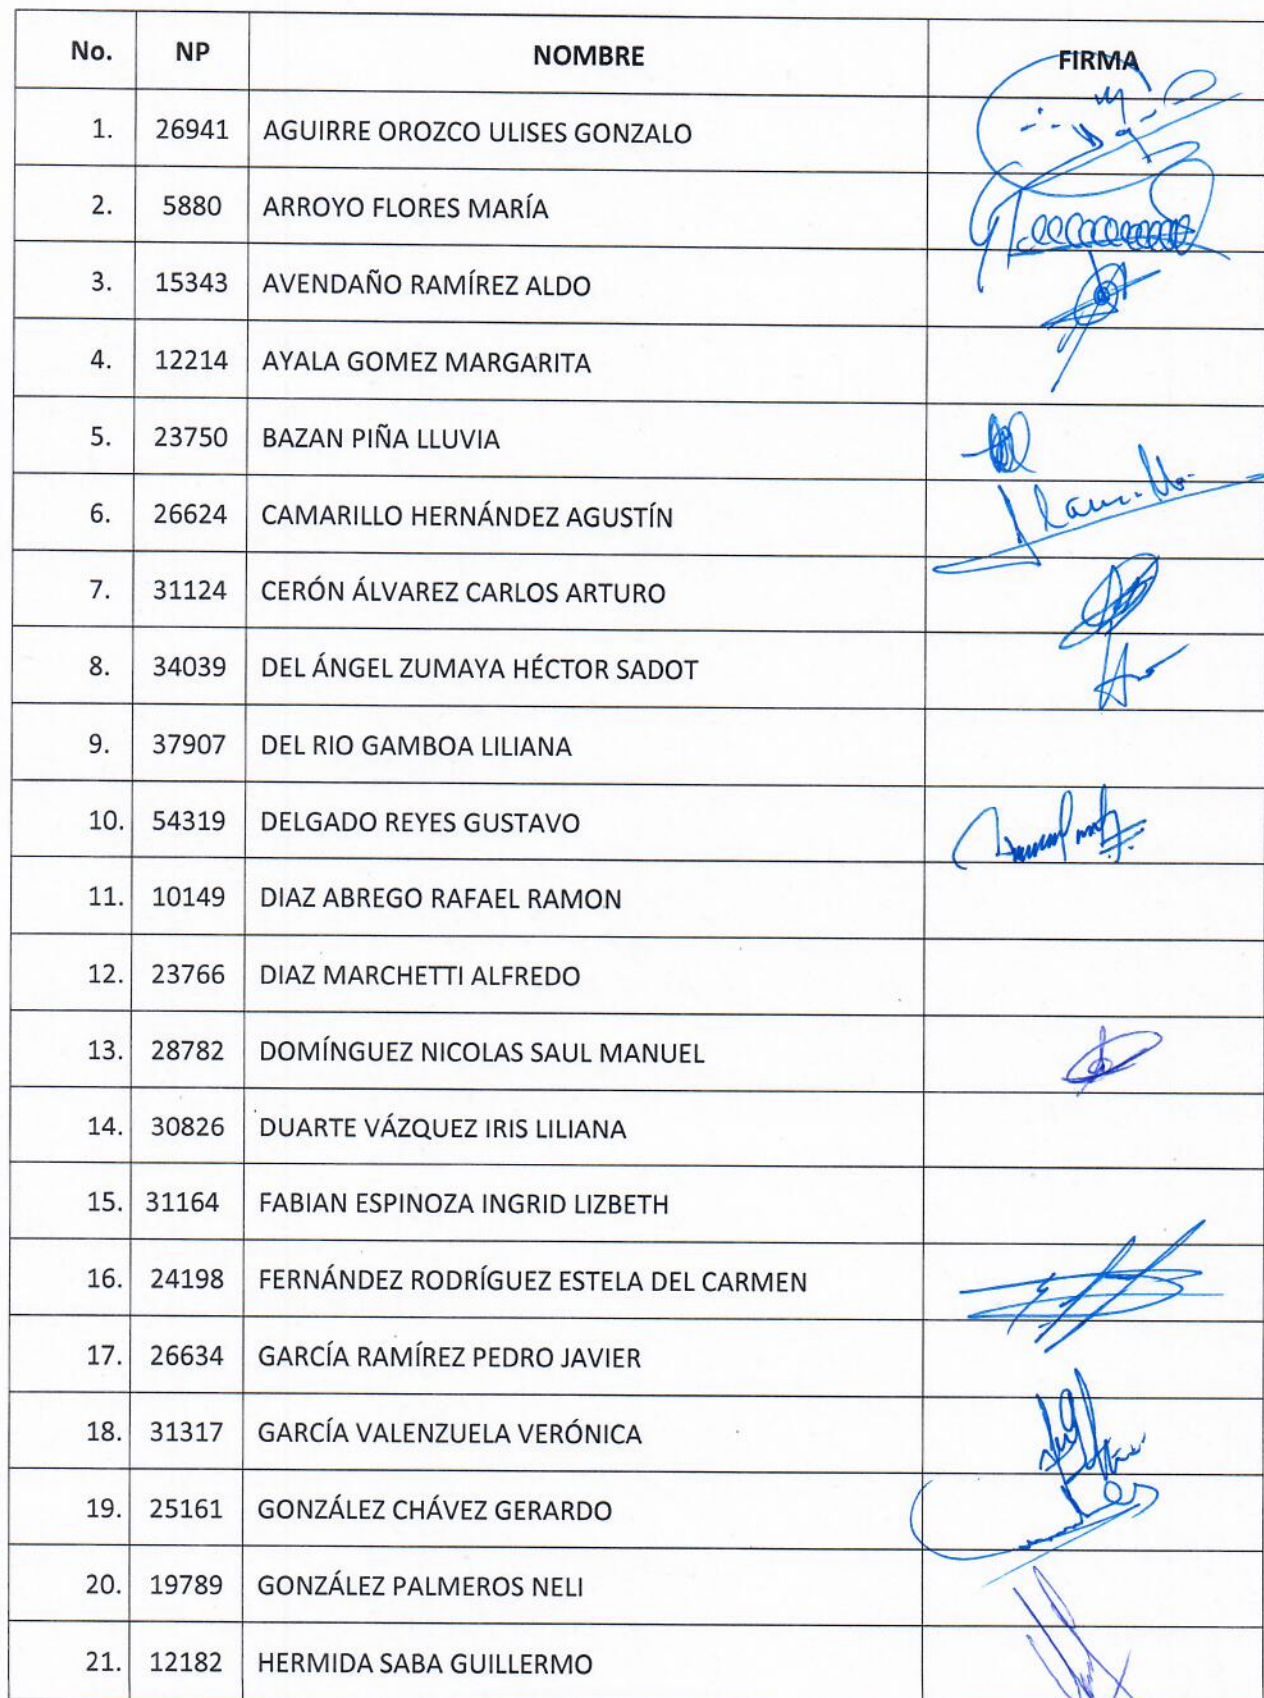 No. NP NOMBRE FIRMA
1. 26941 AGUIRRE OROZCO ULISES GONZALO
2. 5880 ARROYO FLORES MARÍA
3. 15343 AVENDAÑO RAMÍREZ ALDO
4. 12214 AYALA GOMEZ MARGARITA
5. 23750 BAZAN PIÑA LLUVIA
6. 26624 CAMARILLO HERNÁNDEZ AGUSTÍN
7. 31124 CERÓN ÁLVAREZ CARLOS ARTURO
8. 34039 DEL ÁNGEL ZUMAYA HÉCTOR SADOT
9. 37907 DEL RIO GAMBOA LILIANA
10. 54319 DELGADO REYES GUSTAVO
11. 10149 DIAZ ABREGO RAFAEL RAMON
12. 23766 DIAZ MARCHETTI ALFREDO
13. 28782 DOMÍNGUEZ NICOLAS SAUL MANUEL
14. 30826 DUARTE VÁZQUEZ IRIS LILIANA
15. 31164 FABIAN ESPINOZA INGRID LIZBETH
16. 24198 FERNÁNDEZ RODRÍGUEZ ESTELA DEL CARMEN
17. 26634 GARCÍA RAMÍREZ PEDRO JAVIER
18. 31317 GARCÍA VALENZUELA VERÓNICA
19. 25161 GONZÁLEZ CHÁVEZ GERARDO
20. 19789 GONZÁLEZ PALMEROS NELI
21. 12182 HERMIDA SABA GUILLERMO